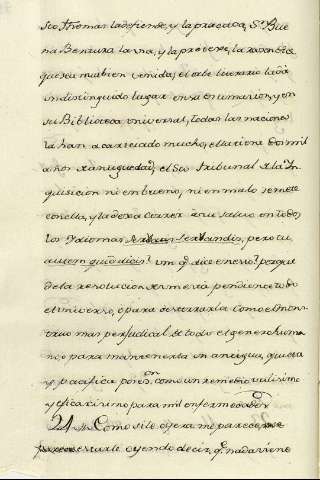 Sto. Thomas la defiende, y la practica, Sn. Bue
na Bentura la usa, y la protexe, la razon de
que sea mui bien venida, el orbe literario la da
un distinguido lugar en su en y en
su Biblioteca universal, todas las nacione
la han acariciado mucho, ella tiene dos mil
años de antiguedad, el Sto. Tribunal de la In
quisicion ni en bueno, ni en malo se mete
con ella, y la dexa correr a su salvo en todos
los Idiomas pero tu
autem quid dicis? Vm. qe. dice en esto? porque
de la resolucion de su mrd. pende un todo
el universo, o para desterrarla como el mons
truo mas perjudicial de todo el genero huma
no, o para mantenerla en antigua, quieta
y pacifica poses.on como un remedio utilisimo
y eficacisimo para mil enfermedades
24 Como si le oyera me parece
estarle oyendo decir, qe. nada tiene